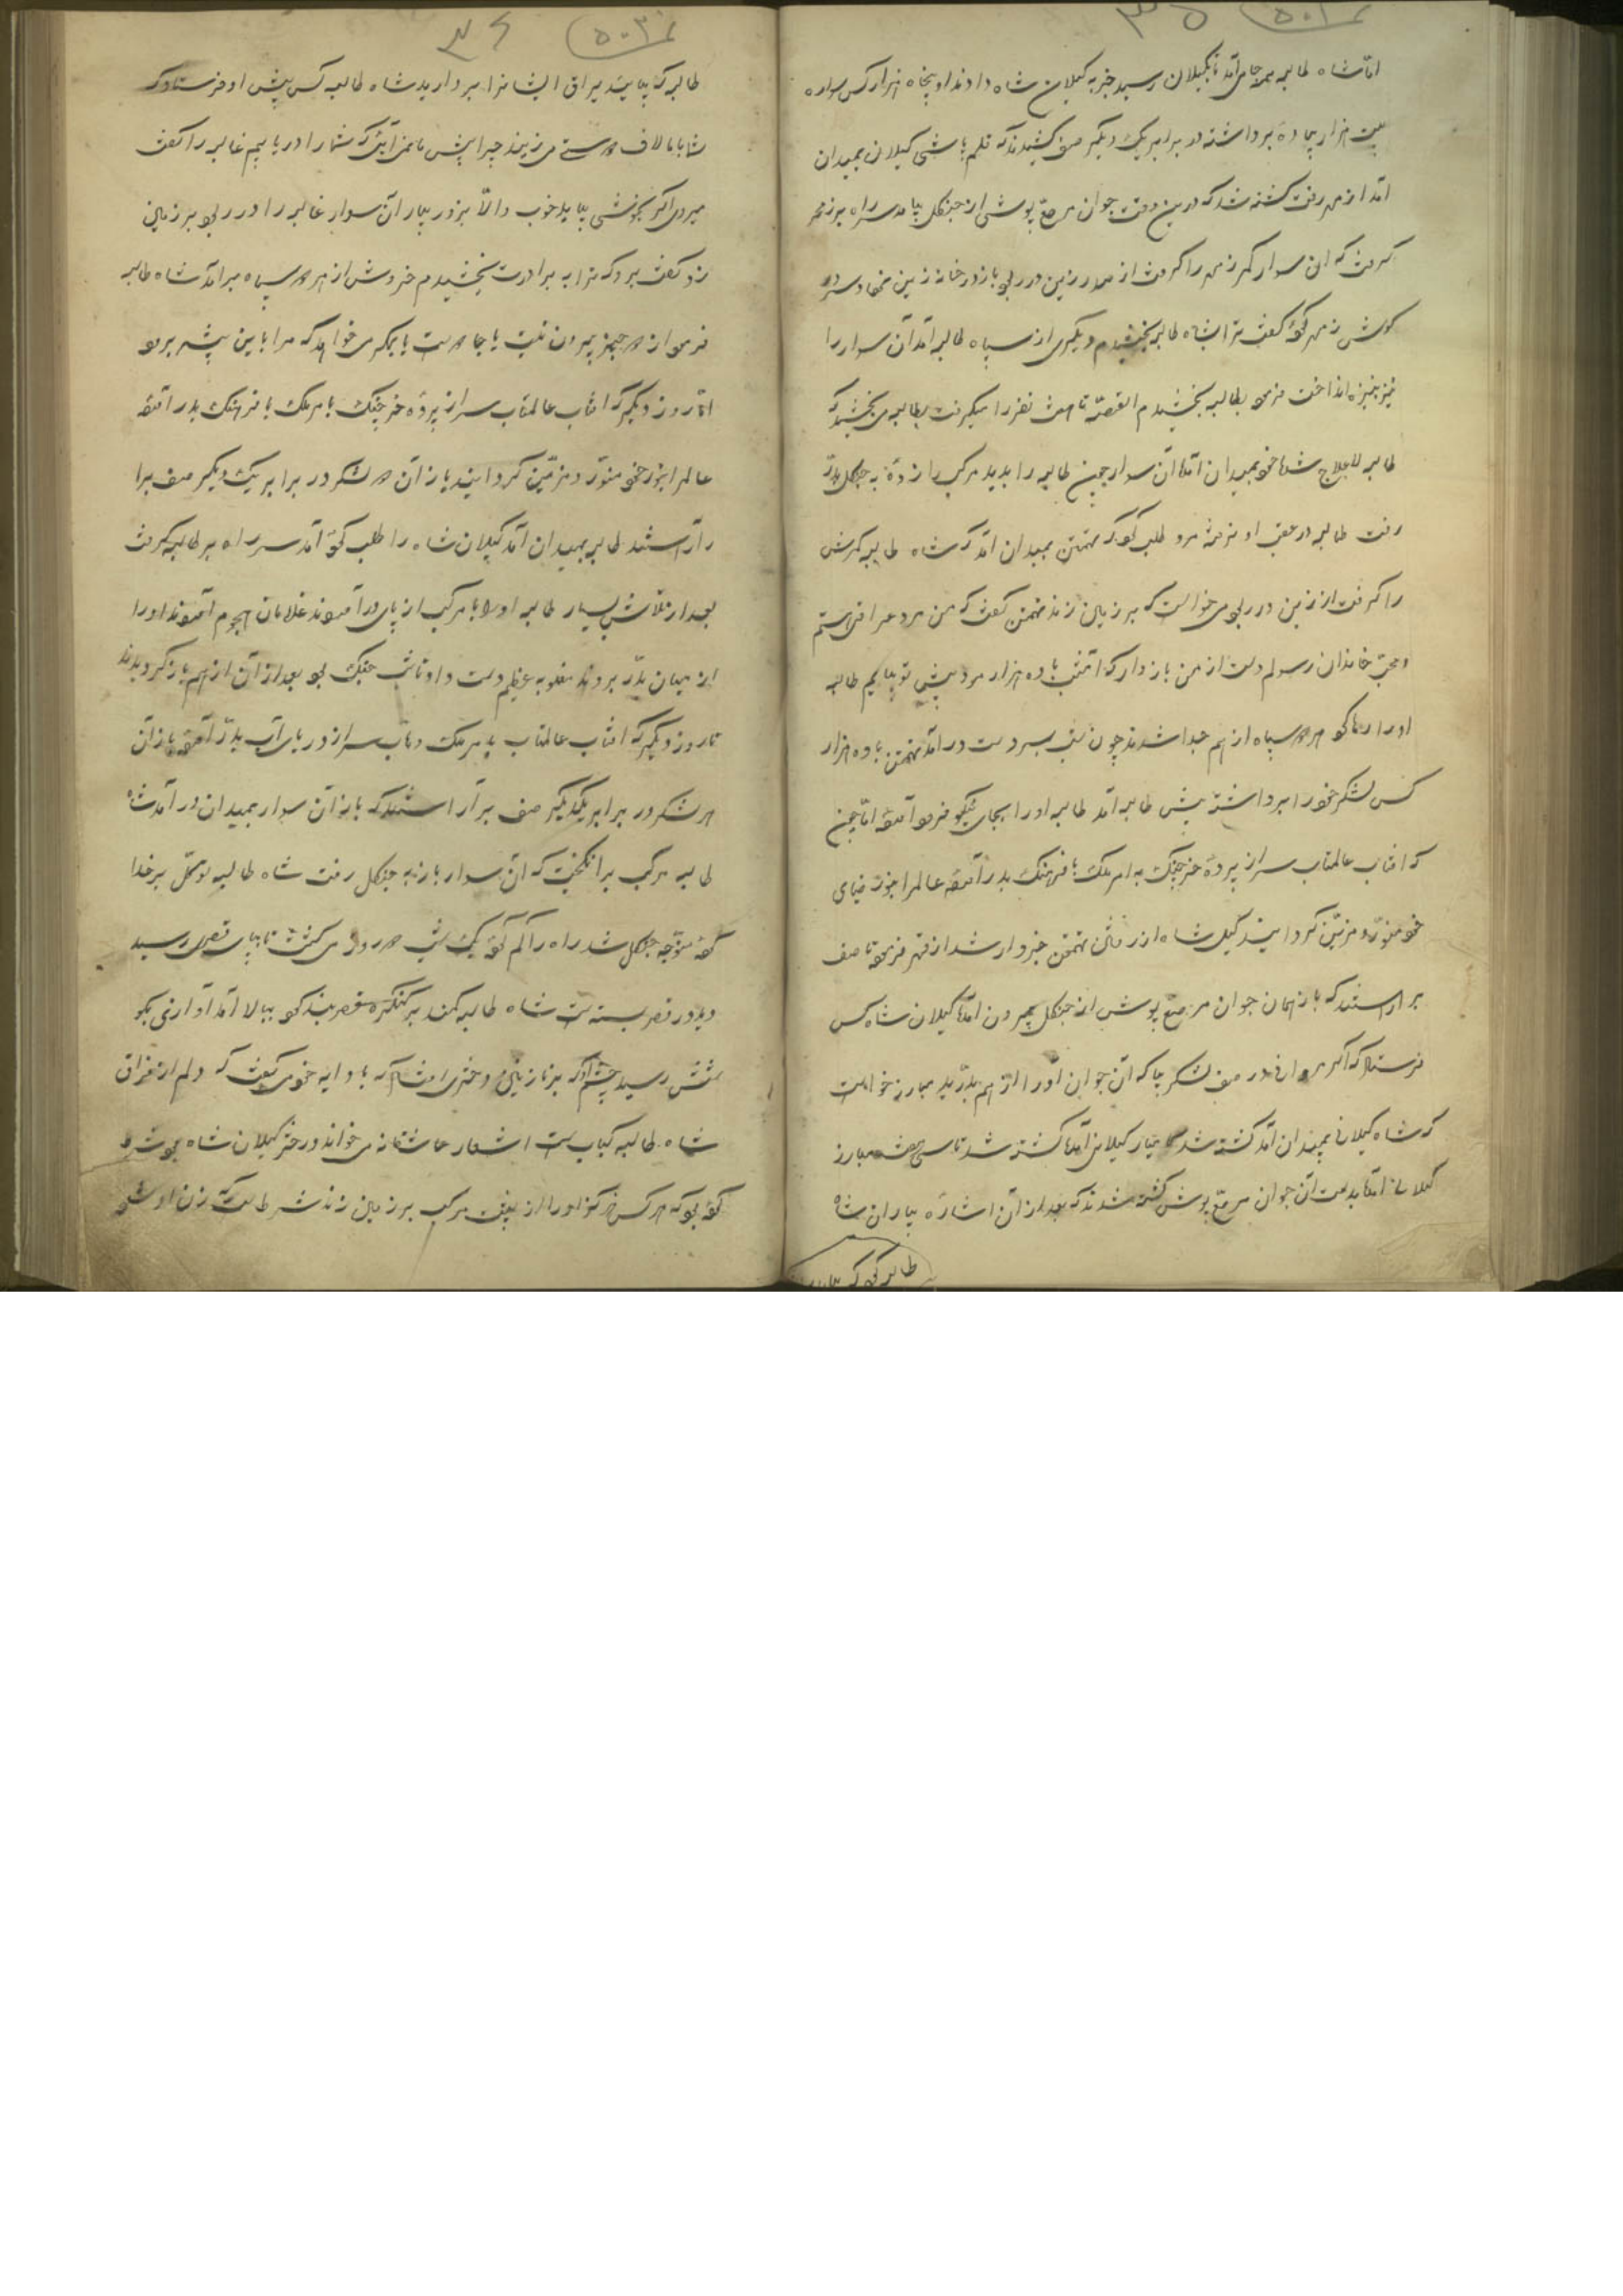 اما شاه طالبه همه جا می آمد تا بگیلان رسید خبر به گیلان شاه دادند او پنجاه هزار کس سواره
بیست هزار پیاده برداشته در برابر یک دیگر صف کشیدند که قلم پاشی گیلانی بمیدان
آمد از رفت کشته شد که درین وقت جوان مرصع پوشی از جنگل بیامد سر راه بر
گرفت که آن سوار کمر را گرفت از صدر زین در ربود باز در خانه زین نهاد و سر در
گوش کرده گفت ترا بشاه طالبه بخشیدم دیگری از سپاه طالبه آمد آن سوار را
نیز بنیزه انداخت فرمود بطالبه بخشیدم القصه تا هشت نفر را میگرفت بطالبه می بخشید که
طالبه لاعلاج شد خود بمیدان آمد آن سوار چون طالبه را بدید مرکب را زده به جنگل بدر
رفت طالبه در عقب او نرفته مرد طلب کرد که تهمتن بمیدان آمد که شاه طالبه کمرش
را گرفت از زین در ربود می خواست که بر زمین زند تهمتن گفت که من مرد عراقی هستم
و محب خاندان رسولم دست از من باز دار که امشب با ده هزار مرد پیش تو بیایم طالبه
او را رها کرد هر دو سپاه از هم جدا شدند چون شب بر سر دست در آمد تهمتن با ده هزار
کس لشکر خود را برداشته پیش طالبه آمد طالبه او را بجای نیکو فرود آورد اما چون
که افتاب عالمتاب سر از پرده خرچنگ به امر ملک با فرهنگ بدر آمده عالم را بنور ضیای
خود منور و مزین گردانید گیلان شاه از رفتن تهمتن خبردار شد از قهر فرمود تا صف
بر آراستند که باز همان جوان مرصع پوش از جنگل بیرون آمد گیلان شاه کس
فرستاد که اگر در صف لشکر بیا که آن جوان او را از هم بدرید مبارز خواست
که شاه گیلانی بمیدان آمد کشته شد گیلانی آمد کشته شد تا سی هشت مبارز
گیلانی آمد بدست آن جوان مرصع پوش کشته شدند که بعد از آن اشاره بیاران شاه
طالبه کرد که
طالبه که بیایید یراق ایشانرا بردارید شاه طالبه کس پیش او فرستاد که
شما با ما لاف دوستی می زنید چرا پیش ما نمی آیید که شما را دریابیم غالبه را گفت
میروی اگر بخوشی بیاید خوب والا بزور بیار آن سوار غالبه را در ربود بر زمین
زد گفت برو که ترا به برادرت بخشیدم خروش از هر دو سپاه بر آمد شاه طالبه
فرمود از دو چیز بیرون نیست یا بما دوست یا بمکر می خواهد که مرا باین بیشه برد
اما روز دیگر که افتاب عالمتاب سر از پرده خرچنگ بامر ملک با فرهنگ بدر آمده
عالم را بنور خود منور و مزین گردانید باز آن دو لشکر در برابر یک دیگر صف برا
بر آراستند طالبه بمیدان آمد گیلان شاه را طلب کرد آمد سر راه بر طالبه گرفت
بعد از تلاش بسیار طالبه او را با مرکب از پای در آورد غلامان هجوم آوردند او را
از میان بدر بردند مغلوبه عظیم دست داد تا شب جنگ بود بعد از آن از هم باز گردیدند
تا روز دیگر که افتاب عالمتاب بامر ملک وهاب سر از دریای آب بدر آمد باز آن
هر لشکر در برابر یکدیگر صف بر آراستند که باز آن سوار بمیدان در آمد شاه
طالبه مرکب بر انگیخت که آن سوار باز به جنگل رفت شاه طالبه توکل بر خدا
کرده متوجه جنگل شد راه را گم کرد یک شب دو روز می گشت تا بپای قصری رسید
دید در قصر بسته است شاه طالبه کمند بر کنگره قصر بند کرد ببالا آمد آوازی بگو
شش رسید چشم او که بر نازنین دختری افتاد که با دایه خود می گفت که دلم از فراق
شاه طالبه کباب است اشعار عاشقانه می خواند دختر گیلان شاه بود شرط
کرده بود که هر کس که او را از پشت مرکب بر زمین زند شرط است که زن او شود